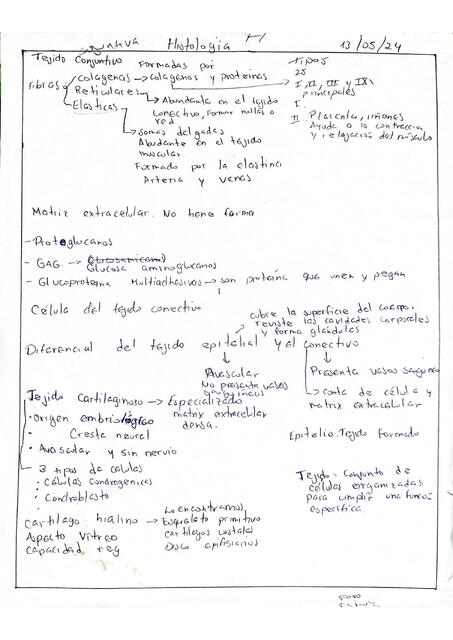 Histología
13/05/24
Tejido Conjuntivo Formadas por
Fibras
Colagenas → colagenos y proteinas
Reticulares
→ Abundante en el tejido
conectivo, Formar mallas o
red
Elasticas
→ Somos delgadas
Abudante en el tejido
muscular
Formado por la elastina
Arteria y venas
tipos
25
I, II, III y IX
principales
I.
II Placenta, riñones
Ayuda a la contraccion
y relajación del músculo
Matriz extracelular. No tiene forma
- Proteglucanos
- GAG →
Glucosa aminoglucanos
- Glucoproteina Multiadhesivas → son proteina que unen y pegan
Célula del tejido conectivo
cubre la superficie del cuerpo,
reviste las cavidades corporales
y forma glándulas
Diferencial del tejido epitelial y el conectivo
Avascular
No presenta vasos
sanguineos
Presenta vasos sanguineo
→ consta de célula y
matrix extracelular
Tejido Cartilaginoso → Especializado
matrix extracelular
densa.
· Origen embriológico
· Cresta neural
· Avascular y sin nervio
3 tipos de celulas
· Células Condrogenicas
· Condroblasto
Epitelio. Tejido formado
Tejido - Conjunto de
células organizadas
para cumplir una función
específica.
Cartilago hialino → Lo encontramos
Esqueleto primitivo
cartilagos costales
Disco epifisiarios
Aspecto Vitreo
Capacidad reg